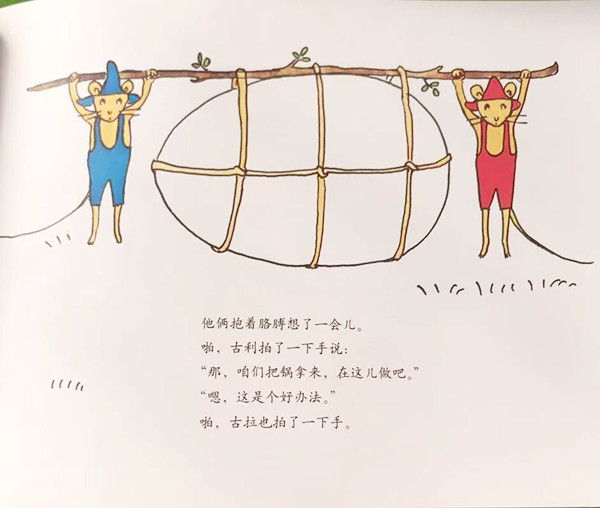 他俩抱着胳膊想了一会儿。
啪，古利拍了一下手说：
“那，咱们把锅拿来，在这儿做吧。”
“嗯，这是个好办法。”
啪，古拉也拍了一下手。